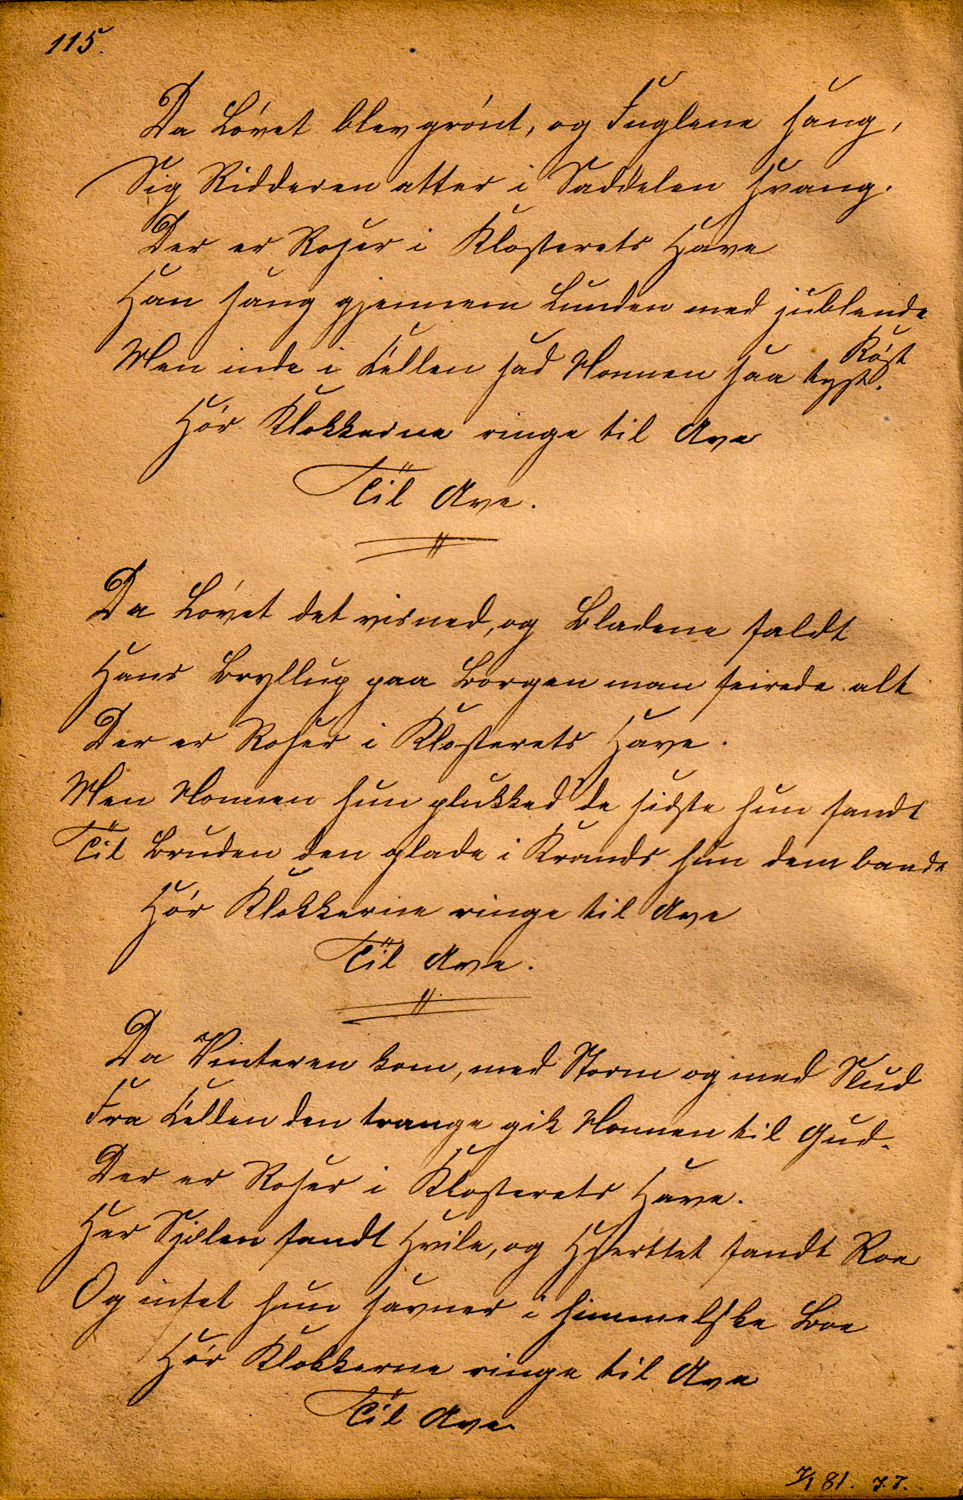 115.
Da Løvet blev grønt, og Fuglene sang,
Sig Ridderen atter i Saddelen svang.
Der er Roser i Klosterets Have
Han sang gjennem Lunden med jublende
Røst
Men inde i Cellen sad Nonnen saa tyst.
Hør Klokkerne ringe til Ave
Til Ave.
Da Løvet det visned, og Bladene faldt
Hans Bryllup paa Borgen man feirede alt
Der er Roser i Klosterets Have.
Men Nonnen hun plukked' de sidste hun fandt
Til Bruden den glade i Krands hun dem bandt
Hør Klokkerne ringe til Ave
Til Ave.
Da Vinteren kom, med Storm og med Slud
Fra Cellen den trange gik Nonnen til Gud.
Der er Roser i Klosterets Have.
Her Sjælen fandt Hvile, og Hjerttet fandt Roe
Og intet hun savner i himmelske Boe
Hør Klokkerne ringe til Ave
Til Ave
81. J.J.